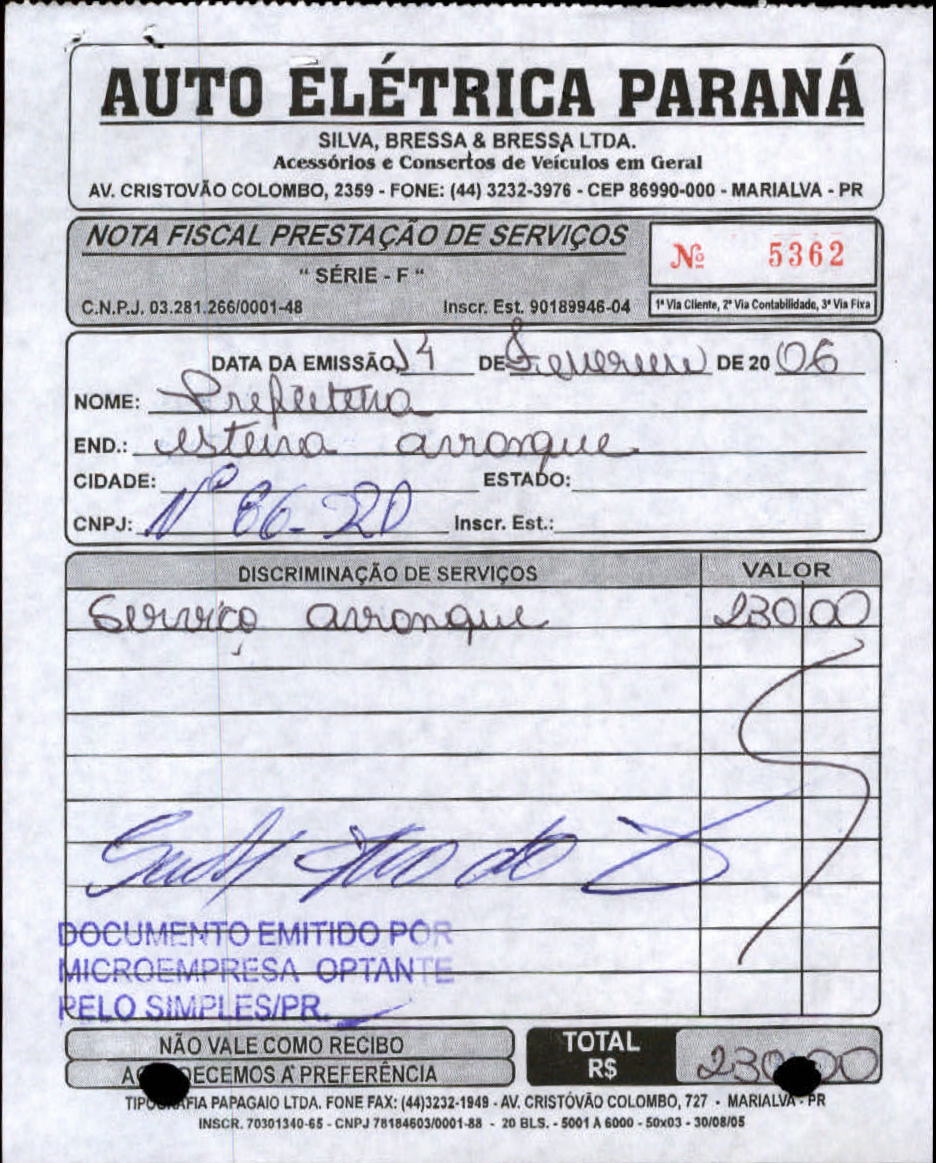 AUTO ELÉTRICA PARANÁ
SILVA, BRESSA & BRESSA LTDA.
Acessórios e Consertos de Veículos em Geral
AV. CRISTOVÃO COLOMBO, 2359 - FONE: (44) 3232-3976 - CEP 86990-000 - MARIALVA - PR
NOTA FISCAL PRESTAÇÃO DE SERVIÇOS
" SÉRIE - F "
C.N.P.J. 03.281.266/0001-48 Inscr. Est. 90189946-04
Nº 5362
1ª Via Cliente, 2ª Via Contabilidade, 3ª Via Fixa
DATA DA EMISSÃO 14 DE Fevereiro DE 20 06
NOME: Prefeitura
END.: esteira arranque
CIDADE: ESTADO:
CNPJ: Nº 86-20 Inscr. Est.:
DISCRIMINAÇÃO DE SERVIÇOS VALOR
Serviço arranque 230 00
DOCUMENTO EMITIDO POR
MICROEMPRESA OPTANTE
PELO SIMPLES/PR.
NÃO VALE COMO RECIBO
AGRADECEMOS A PREFERÊNCIA
TOTAL R$ 230,00
TIPOGRAFIA PAPAGAIO LTDA. FONE FAX: (44)3232-1949 - AV. CRISTÓVÃO COLOMBO, 727 - MARIALVA - PR
INSCR. 70301340-65 - CNPJ 78184603/0001-88 - 20 BLS. - 5001 A 6000 - 50x03 - 30/08/05